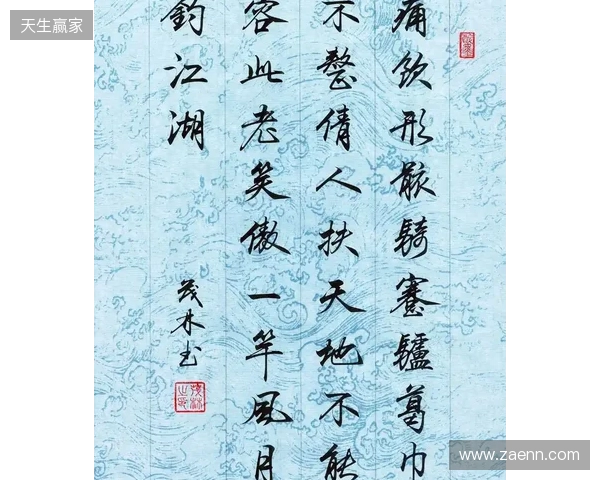 天生赢家
痛饮形骸騎蹇驢葛巾
不整倩人扶天地不能
容此老笑傲一竿風月
釣江湖
茂林书
www.zaenn.com